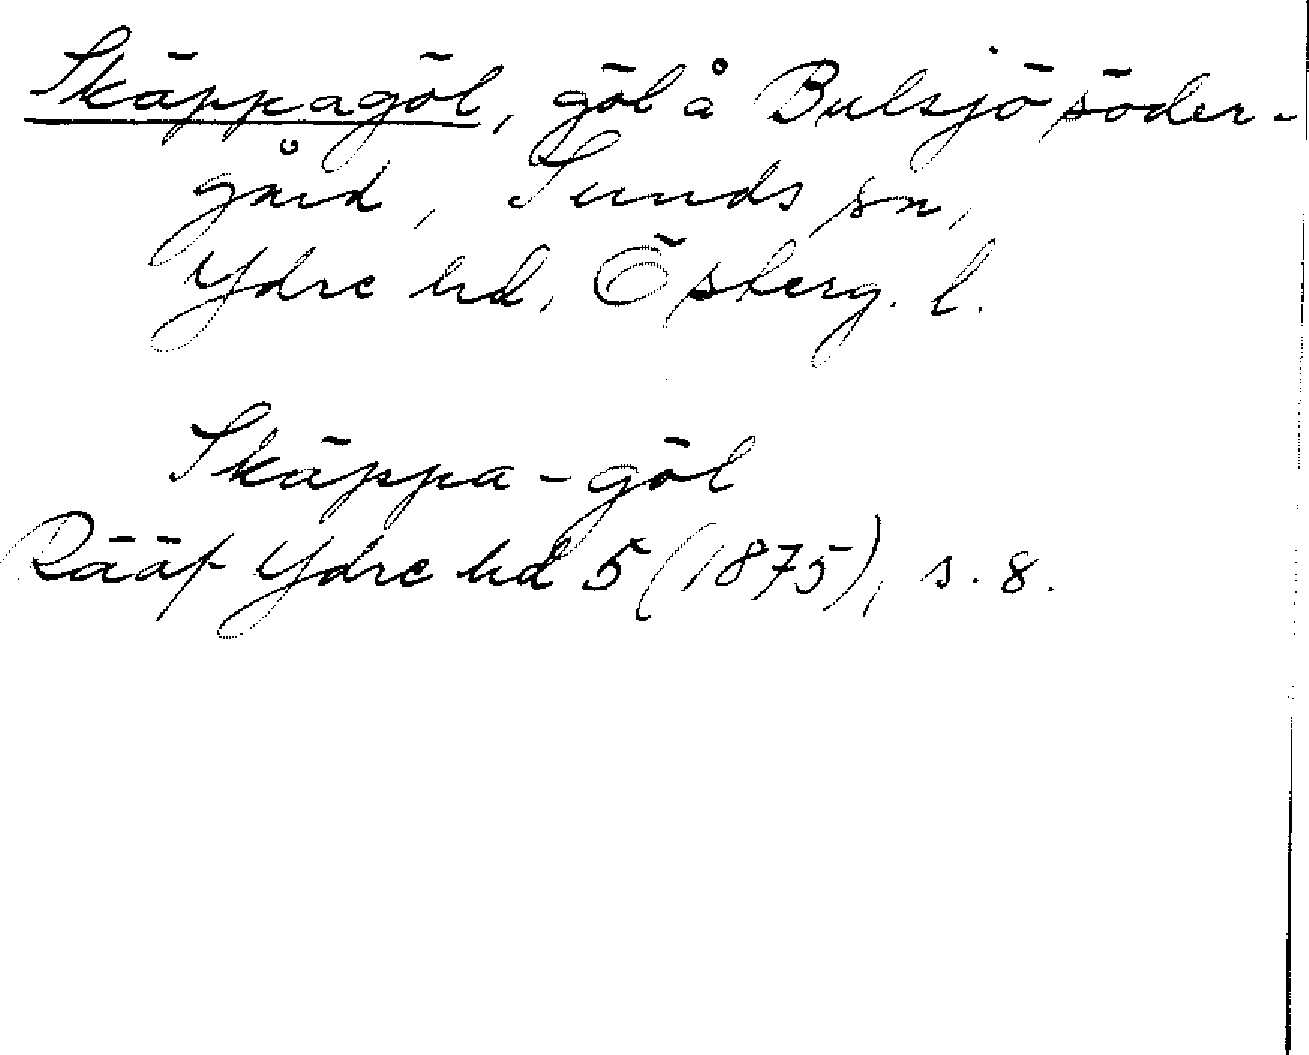 Skäppagöl, göl å Bulsjö söder-
gård, Sunds sn,
Ydre hd, Österg. l.
Skäppa-göl
Rääf Ydre hd 5 (1875), s. 8.